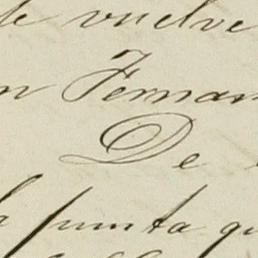 se vuelve
n Fernan
De
la punta qu